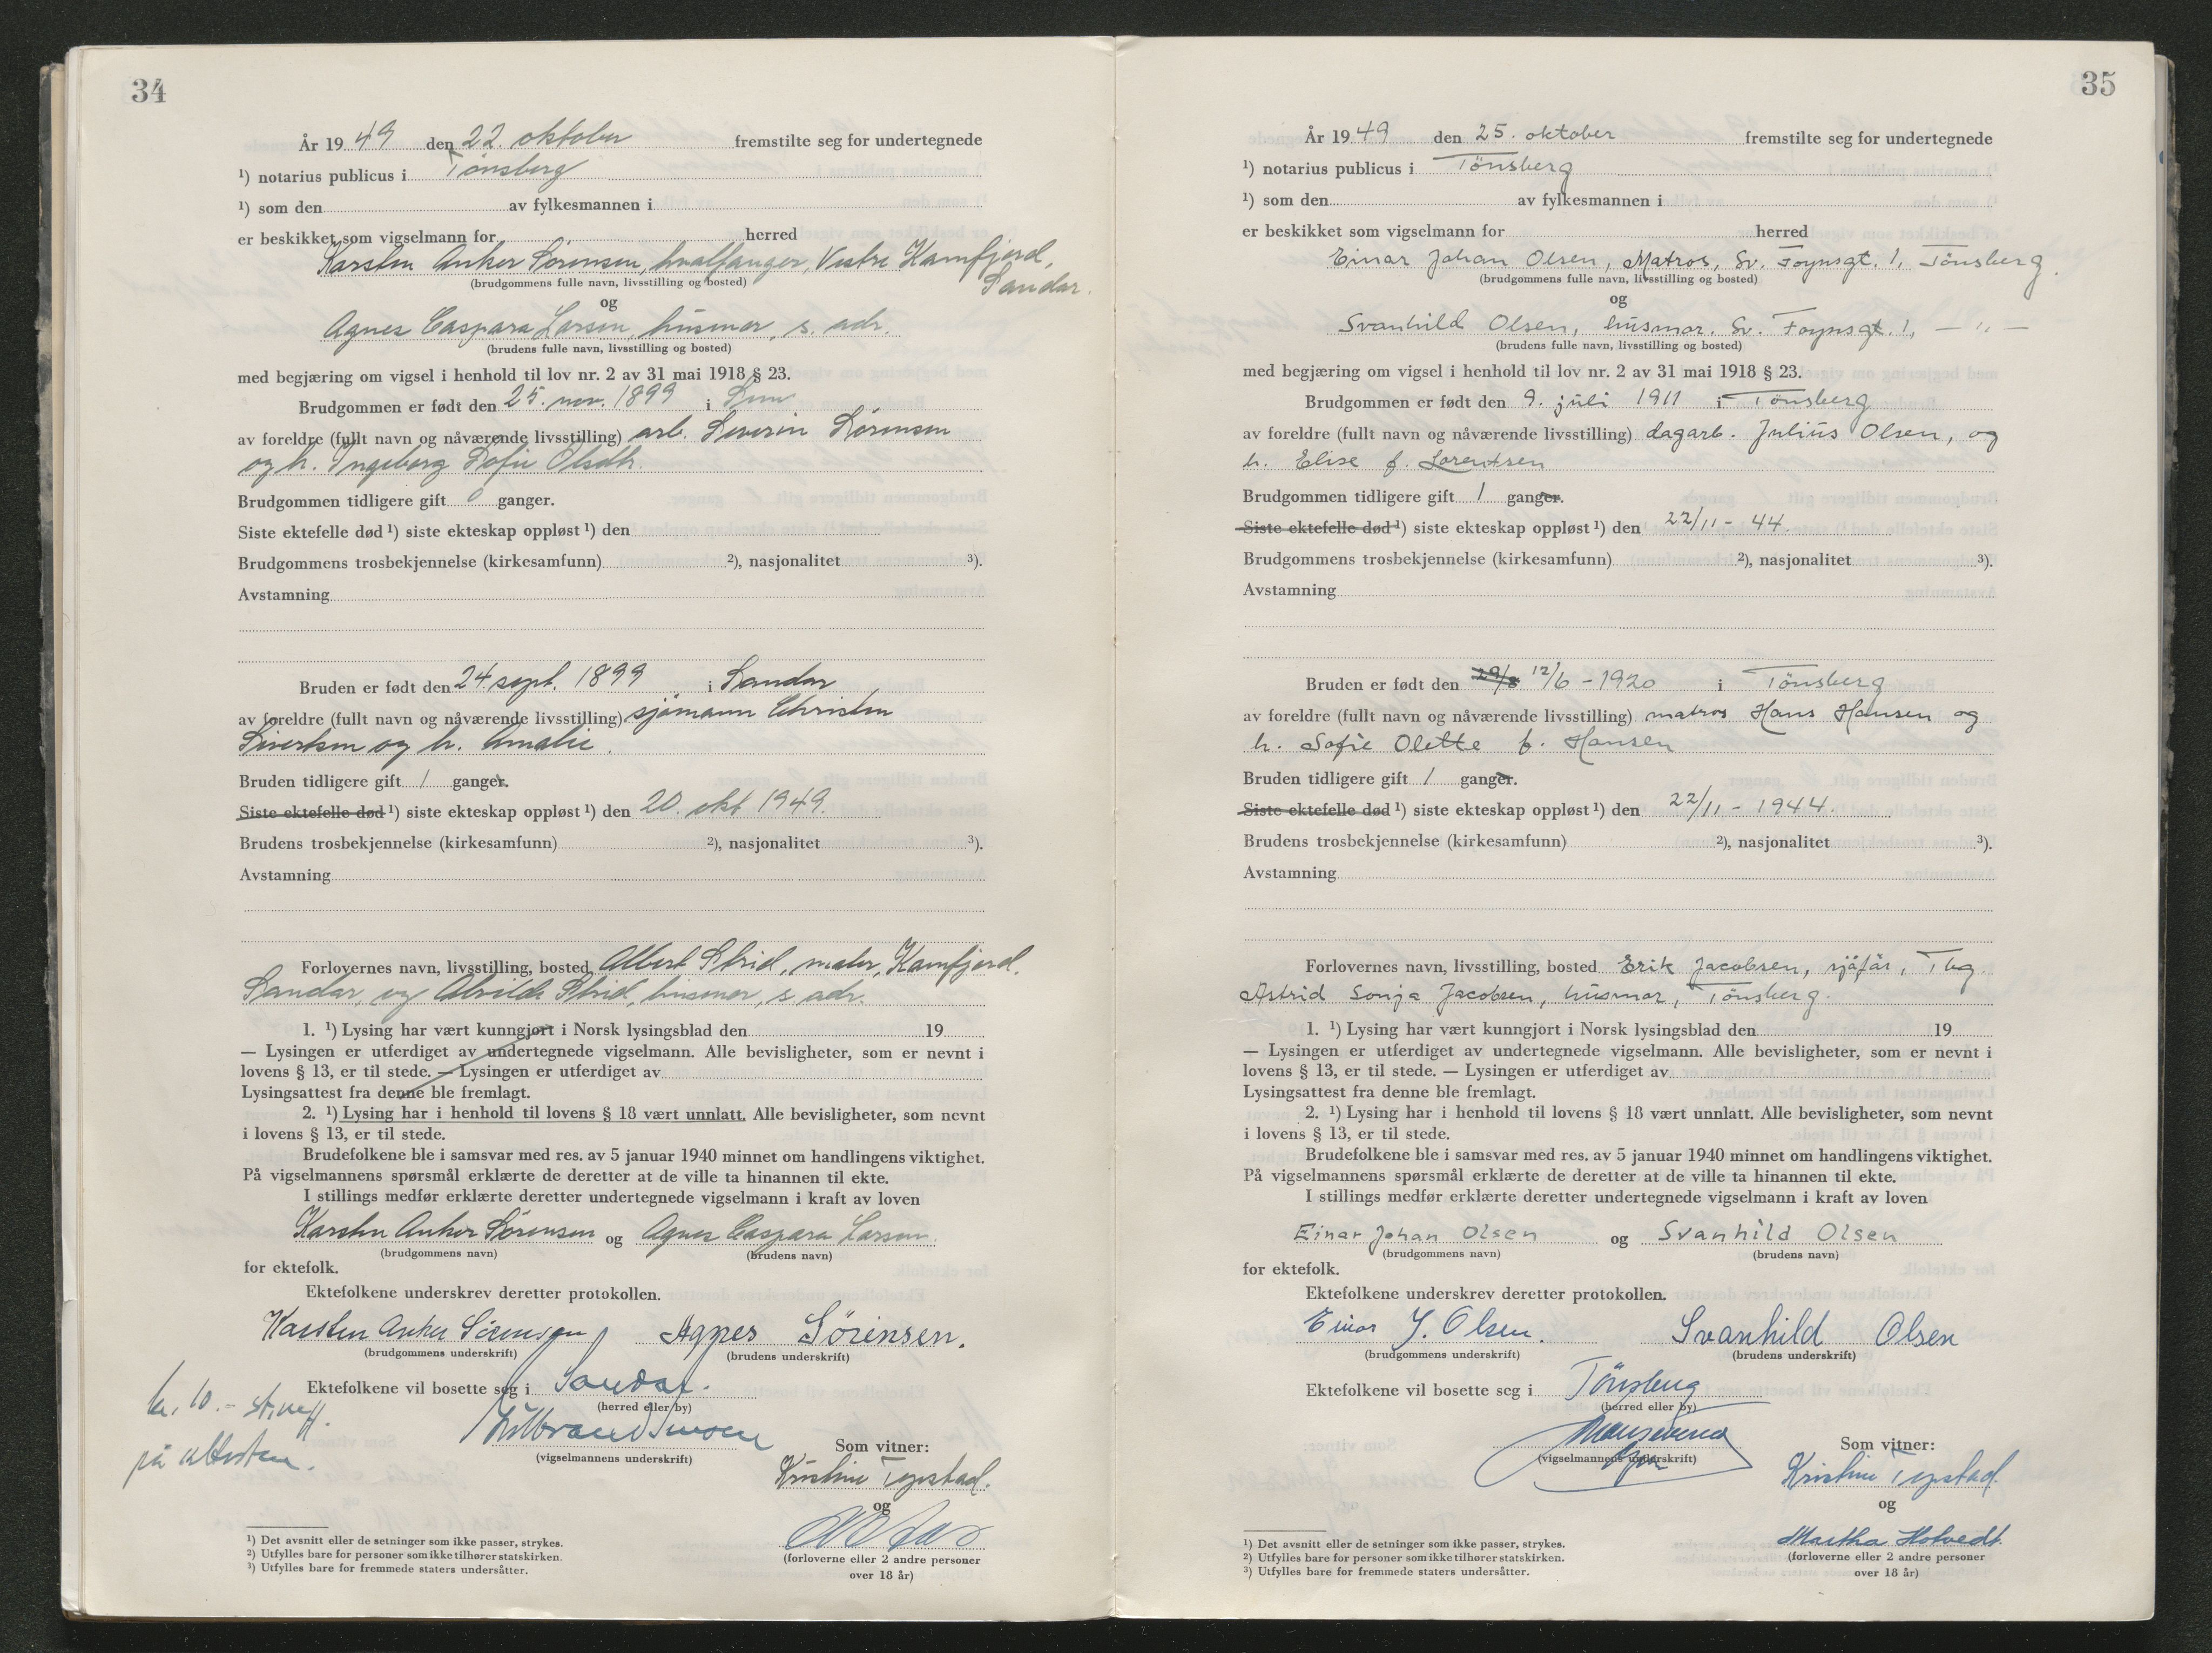 34
År 1949 den 22. oktober fremstilte seg for undertegnede
¹) notarius publicus i Tønsberg
¹) som den av fylkesmannen i
er beskikket som vigselmann for herred
Karsten Anker Sørensen, hvalfanger, Vestre Kamfjord,
Sandar.
(brudgommens fulle navn, livsstilling og bosted)
og
Agnes Caspara Larsen, husmor, s. adr.
(brudens fulle navn, livsstilling og bosted)
med begjæring om vigsel i henhold til lov nr. 2 av 31 mai 1918 § 23.
Brudgommen er født den 25. nov. 1899 i
av foreldre (fullt navn og nåværende livsstilling) arb. Severin Sørensen
og h. Ingeborg Sofie Olsdtr.
Brudgommen tidligere gift 0 ganger.
Siste ektefelle død ¹) siste ekteskap oppløst ¹) den
Brudgommens trosbekjennelse (kirkesamfunn) ²), nasjonalitet ³).
Avstamning
Bruden er født den 24. sept. 1899 i Sandar
av foreldre (fullt navn og nåværende livsstilling) sjømann Christen
Sivertsen og h. Amalie.
Bruden tidligere gift 1 ganger.
Siste ektefelle død ¹) siste ekteskap oppløst ¹) den 20. okt 1949.
Brudens trosbekjennelse (kirkesamfunn) ²), nasjonalitet ³).
Avstamning
Forlovernes navn, livsstilling, bosted Albert Strid, maler, Kamfjord,
Sandar, og Alvilde Strid, husmor, s. adr.
1. ¹) Lysing har vært kunngjort i Norsk lysingsblad den 19
— Lysingen er utferdiget av undertegnede vigselmann. Alle bevisligheter, som er nevnt i
lovens § 13, er til stede. — Lysingen er utferdiget av
Lysingsattest fra denne ble fremlagt.
2. ¹) Lysing har i henhold til lovens § 18 vært unnlatt. Alle bevisligheter, som nevnt
i lovens § 13, er til stede.
Brudefolkene ble i samsvar med res. av 5 januar 1940 minnet om handlingens viktighet.
På vigselmannens spørsmål erklærte de deretter at de ville ta hinannen til ekte.
I stillings medfør erklærte deretter undertegnede vigselmann i kraft av loven
Karsten Anker Sørensen og Agnes Caspara Larsen
(brudgommens navn) (brudens navn)
for ektefolk.
Ektefolkene underskrev deretter protokollen.
Karsten Anker Sörensen Agnes Sörensen.
(brudgommens underskrift) (brudens underskrift)
Ektefolkene vil bosette seg i Sandar.
(herred eller by)
kr. 10.-
på attesten.
(vigselmannens underskrift)
Som vitner:
Kristine Tegstad.
og
(forloverne eller 2 andre personer
over 18 år)
¹) Det avsnitt eller de setninger som ikke passer, strykes.
²) Utfylles bare for personer som ikke tilhører statskirken.
³) Utfylles bare for fremmede staters undersåtter.
35
År 1949 den 25. oktober fremstilte seg for undertegnede
¹) notarius publicus i Tönsberg
¹) som den av fylkesmannen i
er beskikket som vigselmann for herred
Einar Johan Olsen, Matros, Sv. Foynsgt. 1, Tönsberg.
(brudgommens fulle navn, livsstilling og bosted)
og
Svanhild Olsen, husmor, Sv. Foynsgt. 1, — " —
(brudens fulle navn, livsstilling og bosted)
med begjæring om vigsel i henhold til lov nr. 2 av 31 mai 1918 § 23.
Brudgommen er født den 9. juli 1911 i Tönsberg
av foreldre (fullt navn og nåværende livsstilling) dagarb. Julius Olsen, og
h. Elise f. Lorentsen
Brudgommen tidligere gift 1 ganger.
Siste ektefelle død ¹) siste ekteskap oppløst ¹) den 22/11 - 44.
Brudgommens trosbekjennelse (kirkesamfunn) ²), nasjonalitet ³).
Avstamning
Bruden er født den 29/8 12/6 - 1920 i Tönsberg
av foreldre (fullt navn og nåværende livsstilling) matros Hans Hansen og
h. Sofie Olette f. Hansen
Bruden tidligere gift 1 ganger.
Siste ektefelle død ¹) siste ekteskap oppløst ¹) den 22/11 - 1944.
Brudens trosbekjennelse (kirkesamfunn) ²), nasjonalitet ³).
Avstamning
Forlovernes navn, livsstilling, bosted Erik Jacobsen, sjåfår, Tbg.
Astrid Sonja Jacobsen, husmor, Tönsberg.
1. ¹) Lysing har vært kunngjort i Norsk lysingsblad den 19
— Lysingen er utferdiget av undertegnede vigselmann. Alle bevisligheter, som er nevnt i
lovens § 13, er til stede. — Lysingen er utferdiget av
Lysingsattest fra denne ble fremlagt.
2. ¹) Lysing har i henhold til lovens § 18 vært unnlatt. Alle bevisligheter, som nevnt
i lovens § 13, er til stede.
Brudefolkene ble i samsvar med res. av 5 januar 1940 minnet om handlingens viktighet.
På vigselmannens spørsmål erklærte de deretter at de ville ta hinannen til ekte.
I stillings medfør erklærte deretter undertegnede vigselmann i kraft av loven
Einar Johan Olsen og Svanhild Olsen
(brudgommens navn) (brudens navn)
for ektefolk.
Ektefolkene underskrev deretter protokollen.
Einar J. Olsen. Svanhild Olsen
(brudgommens underskrift) (brudens underskrift)
Ektefolkene vil bosette seg i Tönsberg
(herred eller by)
(vigselmannens underskrift)
Som vitner:
Kristine Tegstad.
og
Martha Hotvedt.
(forloverne eller 2 andre personer
over 18 år)
¹) Det avsnitt eller de setninger som ikke passer, strykes.
²) Utfylles bare for personer som ikke tilhører statskirken.
³) Utfylles bare for fremmede staters undersåtter.